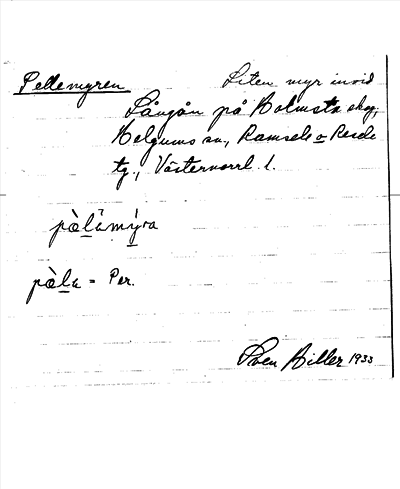 Pellemyren Liten myr invid
Långån på Holmsta skog,
Helgums sn, Ramsele o Resele
tg., Västernorrl. l.
pàlämýra
pàla = Per.
Sven Hiller 1933